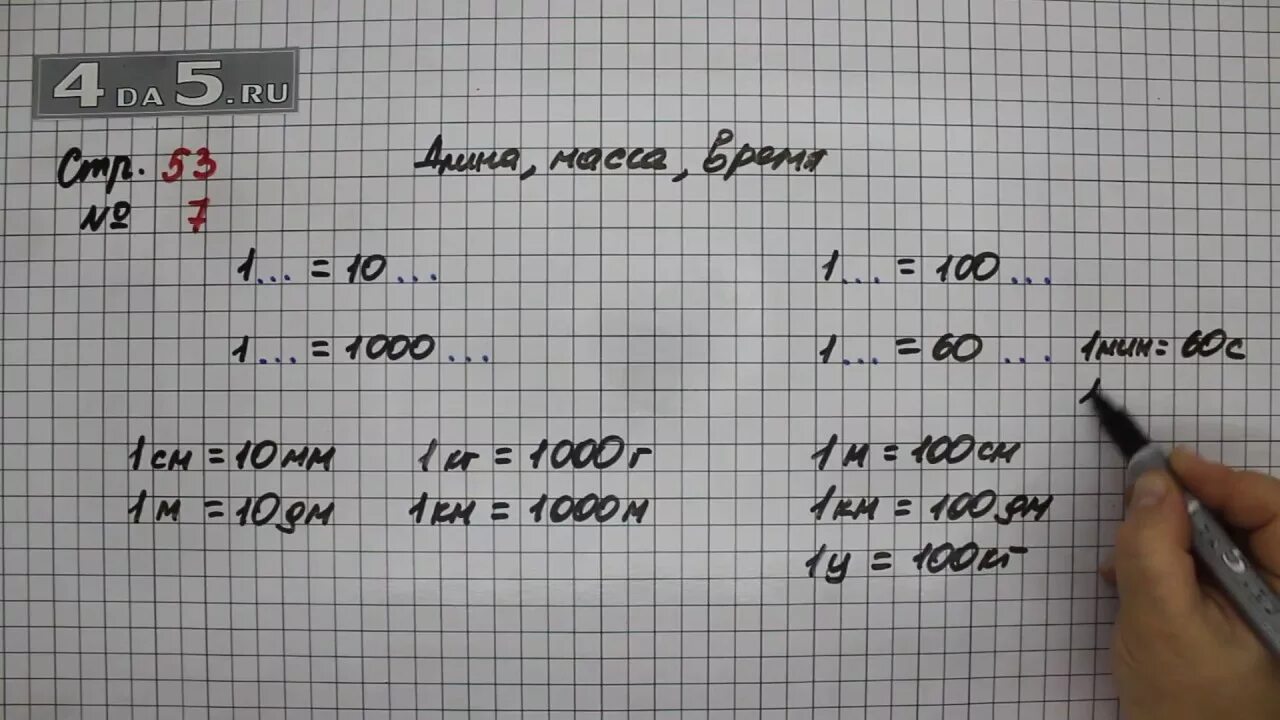 4 DA 5.RU
Стр. 53
Длина, масса, время
№ 7
1... = 10...
1... = 100...
1... = 1000...
1... = 60...
1мин = 60с
1
1см = 10мм
1кг = 1000г
1м = 100см
1м = 10дм
1км = 1000м
1км = 100дм
1ц = 100кг